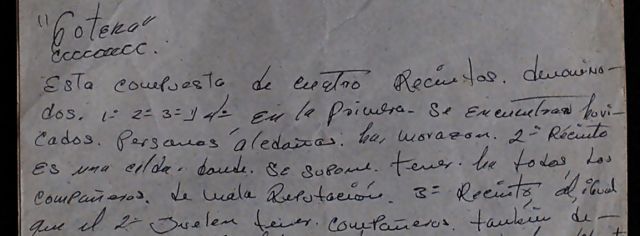 "Gotera"
ccccoccc.
Esta compuesta de cuatro Recintos. denomina-
dos. 1= 2= 3= y 4= En la Primera- Se encuentran hovi-
cados. Personas aledañas. ha, morazan. 2= Recinto
Es una celda. donde. Se Supone. tener. ha todos Los
Compañeros. de mala Reputación. 3= Recinto al igual
que el 2= Suelen tener. Compañeros. también de-